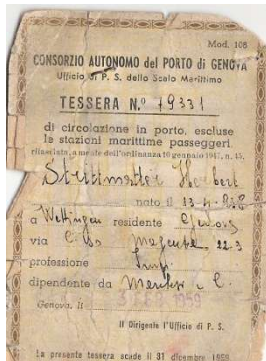 Mod. 108
CONSORZIO AUTONOMO del PORTO di GENOVA
Ufficio di P. S. dello Scalo Marittimo
TESSERA N.° 79331
di circolazione in porto, escluse
le stazioni marittime passeggeri
rilasciata, a mente dell'ordinanza 10 gennaio 1947, n. 15.
Strittmatter Herbert
nato il 13-4-
a Wettingen residente Genova
via C.so Magenta 22-3
professione Imp.
dipendente da
Genova, li 1959
Il Dirigente l'Ufficio di P. S.
La presente tessera scade il 31 dicembre 1959